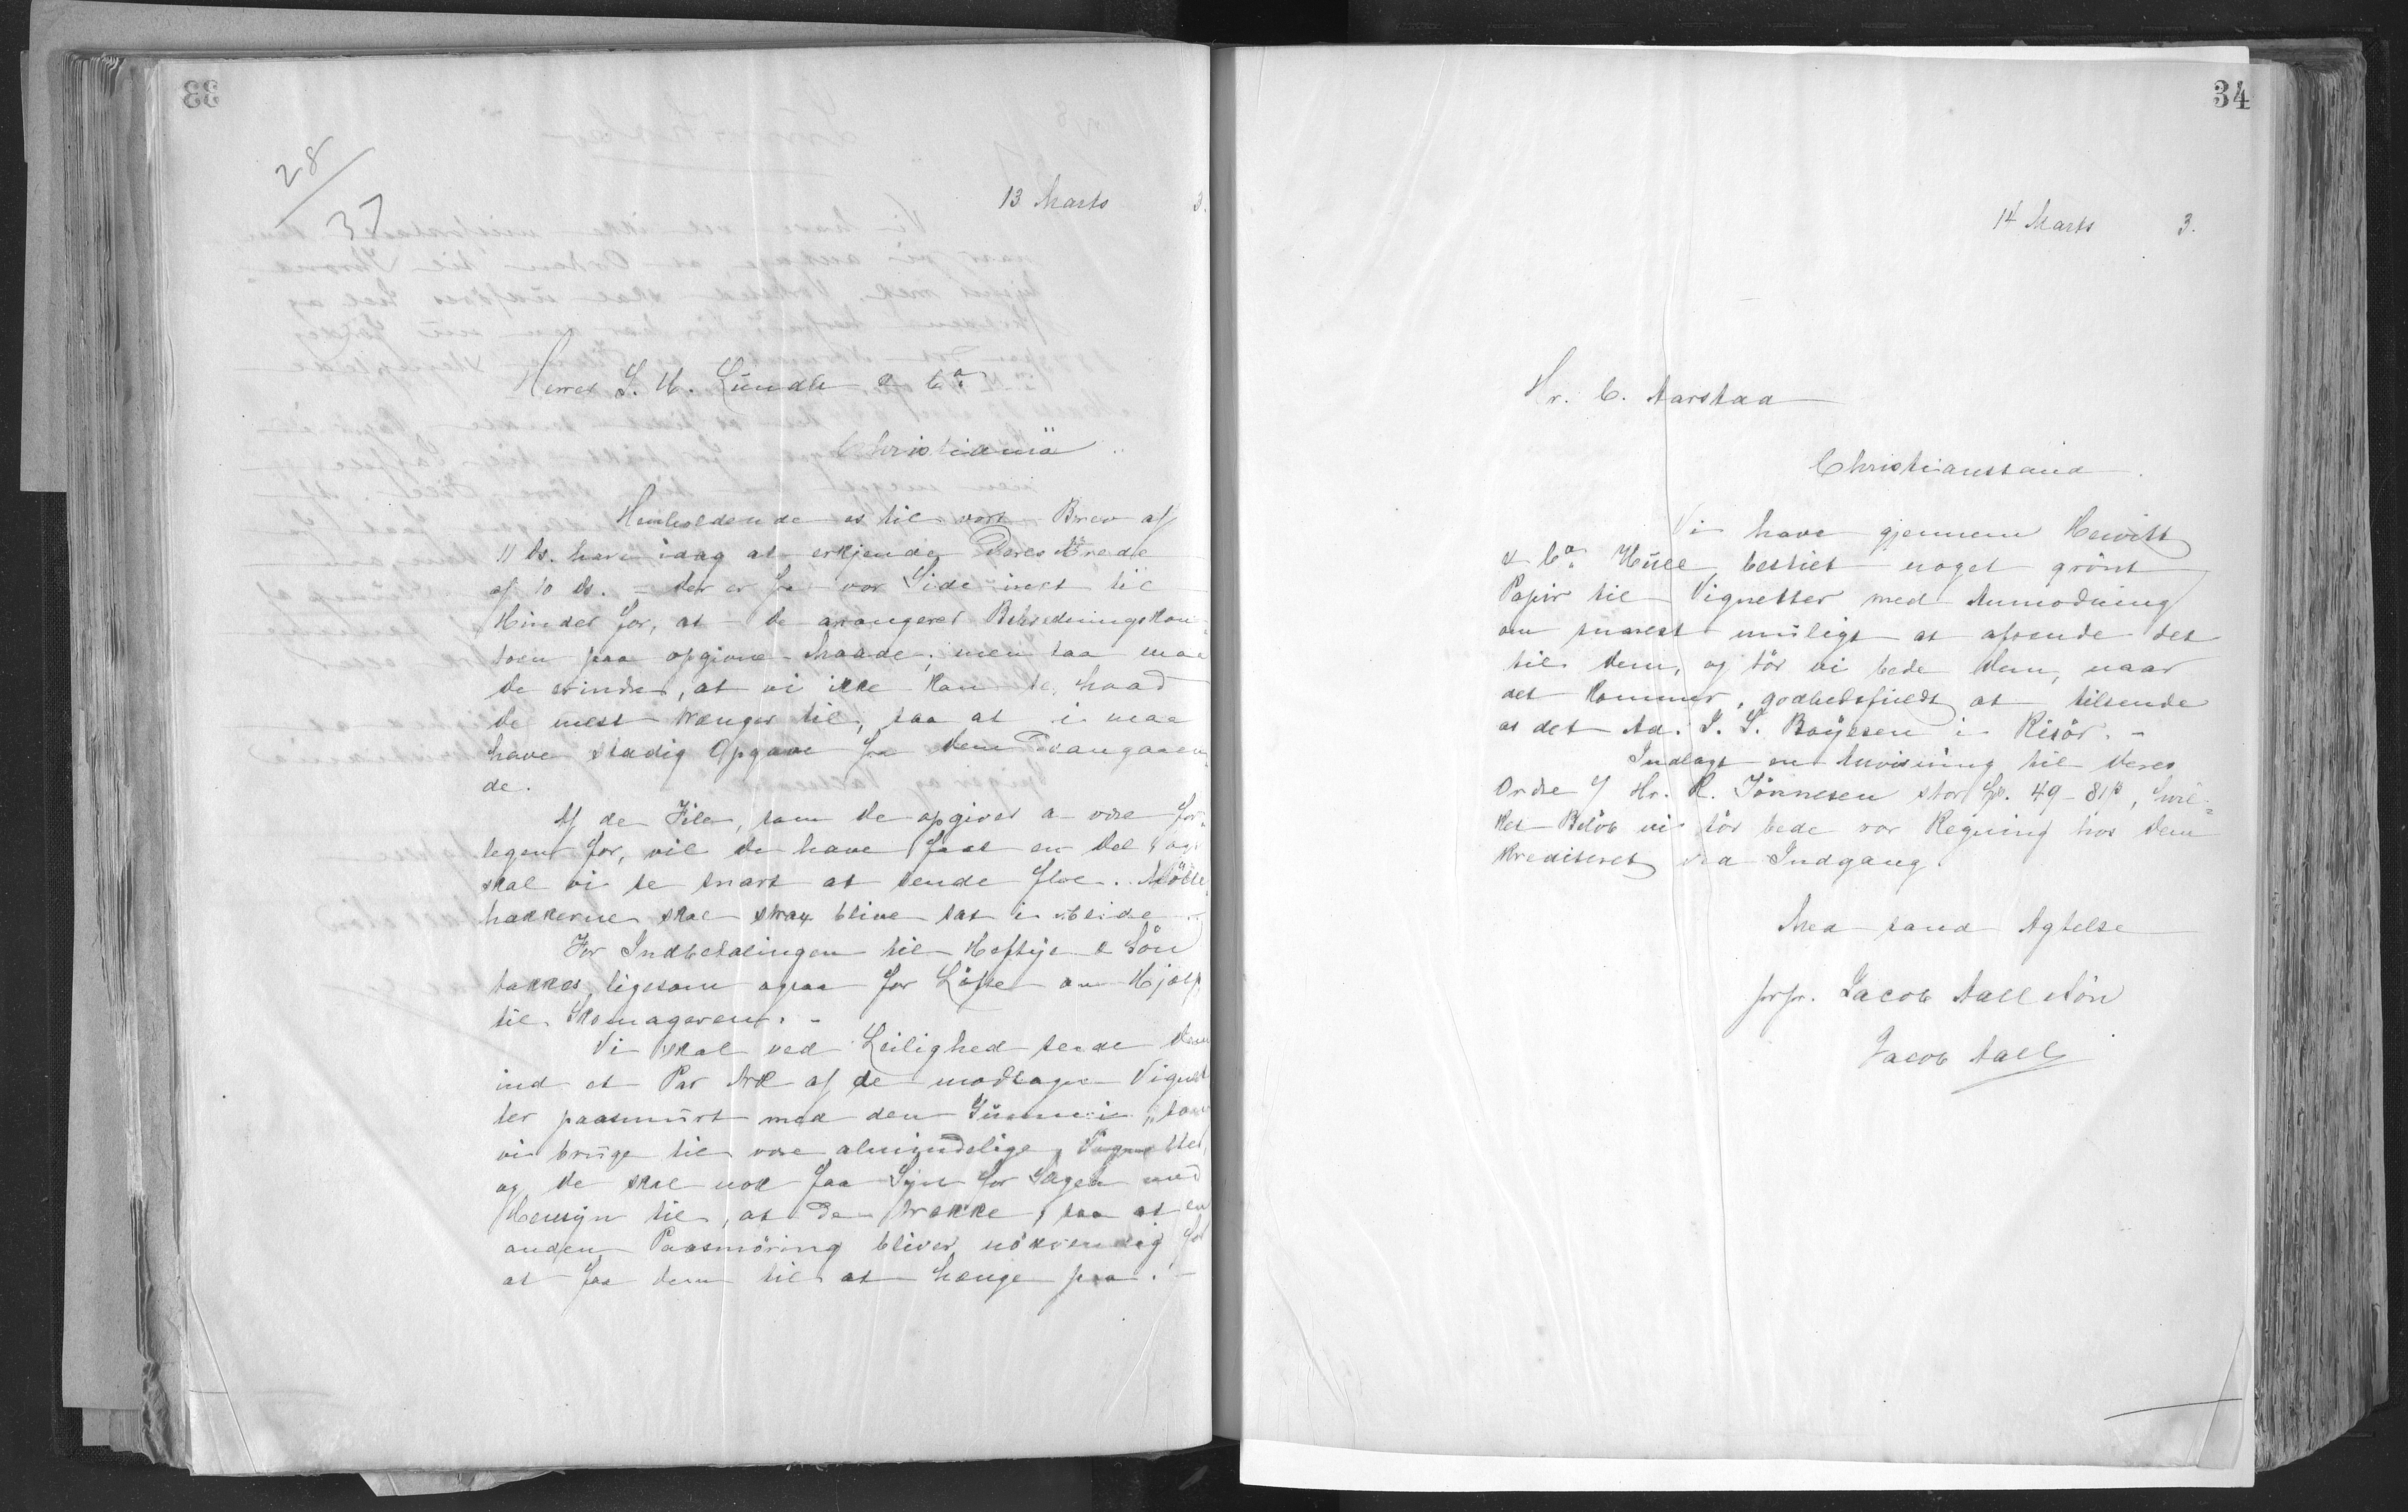 33
28/37
13 Marts 3.
Herrer S. H. Lundh & Co.
Christiania
Henholdende os til vort Brev af
11 ds. have idag at erkjende Deres Ærede
af 10 ds. – Der er fra vor Side intet til
Hinder for, at De arangerer Betrædningskon-
toen paa opgivne Maade; men saa maa
De erindre, at vi ikke kan se, hvad
De mest trænger til, saa at vi maa
have stadig Opgave fra Dem Desangaaen
de.
Af de File, som De opgiver at være for-
legen for, vil De have faaet en Del & og
skal vi se snart at sende flere. Mölle-
hakkerne skal strax blive sat i Arbeide
For Indbetalingen til Heftye & Sön
takkes, ligesom ogsaa for Löfte om Hjælp
til Skomageren. –
Vi skal ved Leilighed sende Dem
ind et Par Ark af de modtagne Vignet
ter paasmurt med den Gummi, som
vi bruge til vore almindelige Vignetter,
og De skal nok faa Syn for Sagen med
Hensyn til, at de trække, saa at en
anden Paasmöring bliver nödvendig for
at faa dem til at hænge paa. –
34
14 Marts 3.
Hr. C. Aarstad
Christianssand.
Vi have gjennem Hewitt
& Co. Hull bestilt noget grönt
Papir til Vignetter med Anmodning
om snarest muligt at afsende det
til Dem, og tör vi bede Dem, naar
det kommer, godhedsfuldt at tilsende
os det Ad. S. S. Boÿesen i Risör. –
Indlagt en Anvisning til Deres
Ordre / Hr. K. Jönnesen stor 49 – 81, hvil-
ket Belöb vi tör bede vor Regning hos Dem
krediteret ved Indgang.
Med sand Agtelse
prpr. Jacob Aall & Sön
Jacob Aall